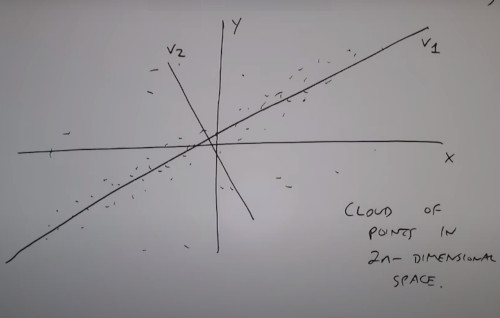 Y
V2
V1
X
CLOUD OF
POINTS IN
2n-DIMENSIONAL
SPACE.